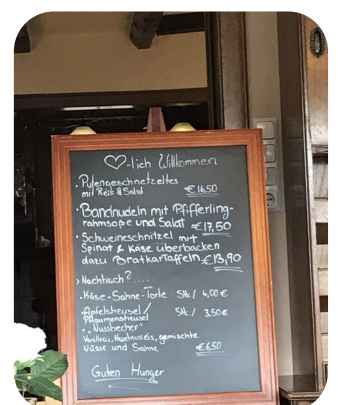 ♡-lich Willkommen
· Putengeschnetzeltes
mit Reis & Salat € 16,50
· Bandnudeln mit Pfifferling-
rahmsoße und Salat € 17,50
· Schweineschnitzel mit
Spinat & Käse überbacken
dazu Bratkartoffeln € 13,90
> Nachtisch?....
· Käse-Sahne-Torte Stk / 4,00 €
· Apfelstreusel / Stk / 3,50 €
Pflaumenstreusel
· "Nussbecher"
Vanilleeis, Haselnusseis, gemischte
Nüsse und Sahne € 6,50
Guten Hunger